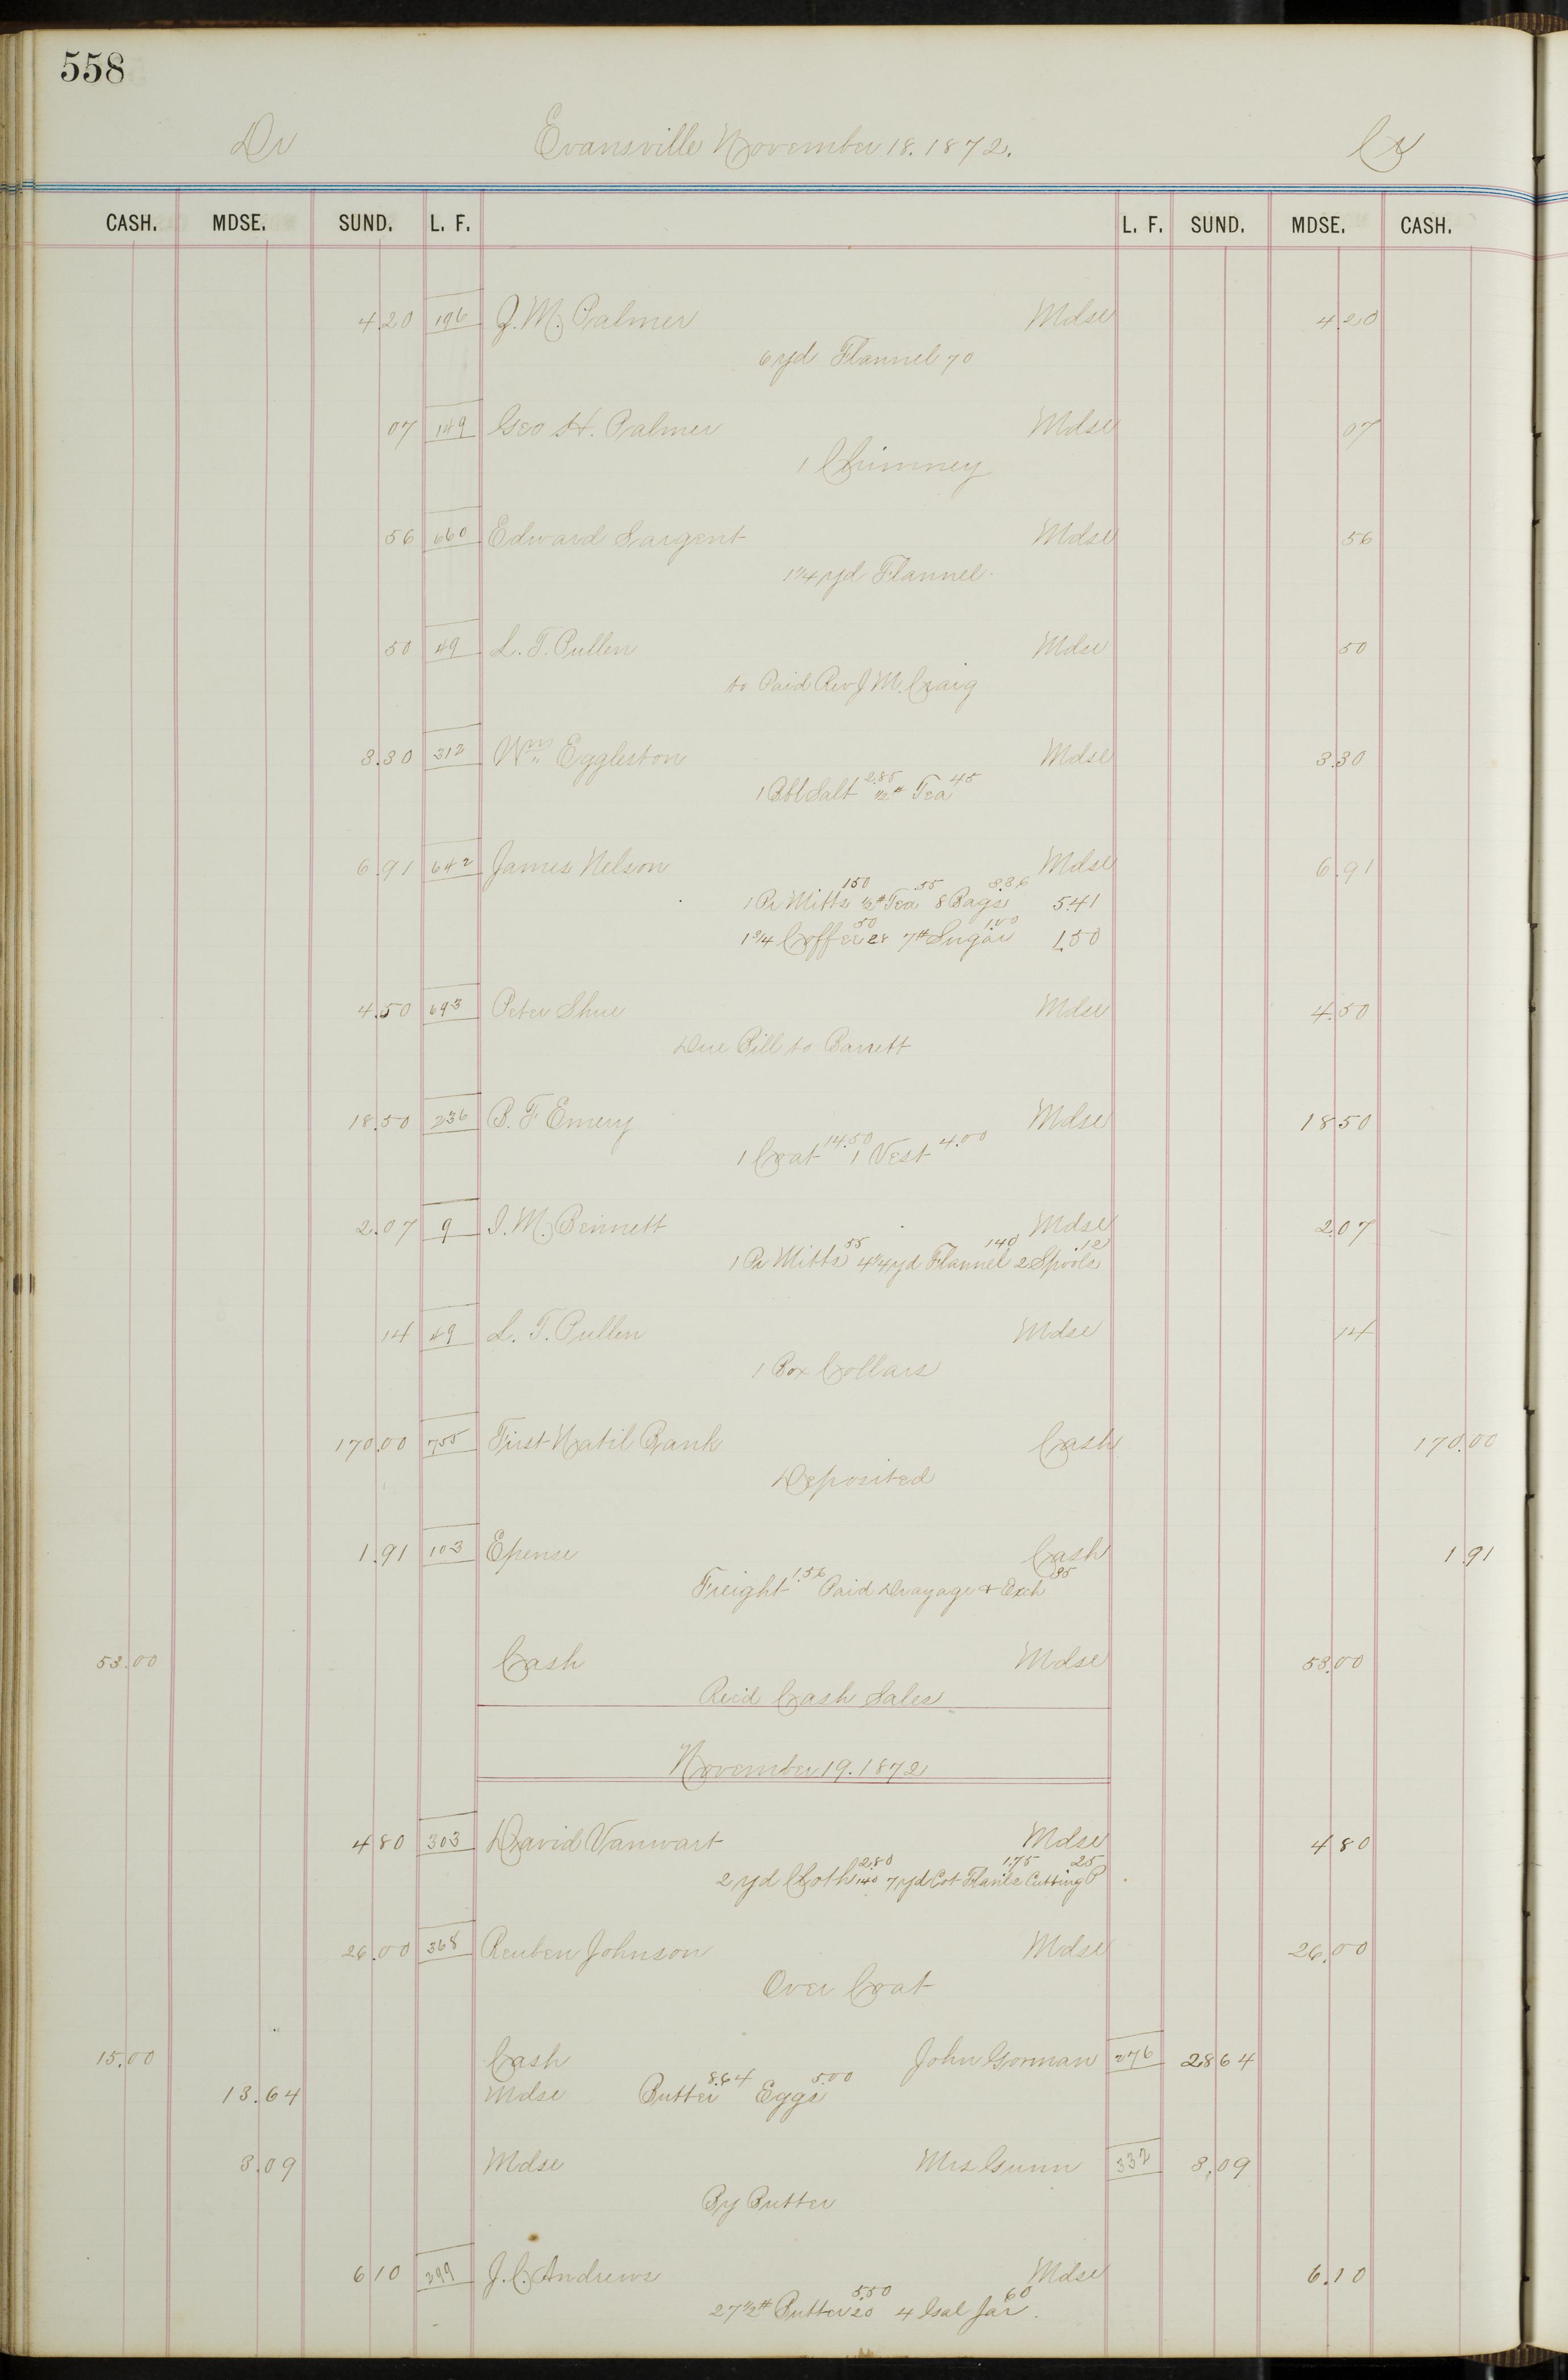 558
Dr Evansville November 18. 1872. Cr
CASH. MDSE. SUND. L. F. L. F. SUND. MDSE. CASH.
4.20 196 J. M. Palmer Mdse 4.20
6 yd Flannel 70
07 149 Geo H. Palmer Mdse 07
1 Chimney
56 660 Edward Sargent Mdse 56
1 1/4 yd Flannel
50 49 L. T. Pullen Mdse 50
to Paid Rev J M. Craig
3.30 312 Wm Eggleston Mdse 3.30
1 Bbl Salt 2.85 1/2# Tea 45
6.91 642 James Nelson Mdse 6.91
1 Pr Mitts 150 1/2# Tea 55 8 Bags 3.36 5.41
1 3/4 Coffee 28 50 7# Sugar 1.00 1.50
4.50 693 Peter Shue Mdse 4.50
Due Bill to Barrett
18.50 236 B. F Emery Mdse 18.50
1 Coat 14.50 1 Vest 4.00
2.07 9 I. M. Bennett Mdse 2.07
1 Pr Mitts 55 4 1/4 yd Flannel 140 2 Spools .12
14 49 L. T. Pullen Mdse 14
1 Box Collars
170.00 755 First Natil Bank Cash 170.00
Deposited
1.91 103 Epense Cash 1.91
Freight 1.56 Paid Drayage & Exch 35
53.00 Cash Mdse 53.00
Rec'd Cash Sales
November 19. 1872
4 80 303 David Vanwart Mdse 4 80
2 yd Cloth 140 2.80 7 yd Cot Flanl 1.75 Cutting P 25
26.00 368 Reuben Johnson Mdse 26.00
Over Coat
15.00 Cash John Gorman 276 28 64
13.64 Mdse Butter 8.64 Eggs 5.00
3.09 Mdse Mrs Gunn 332 3.09
By Butter
6 10 299 J. C. Andrews Mdse 6.10
27 1/2# Butter 20 5.50 4 Gal Jar 60